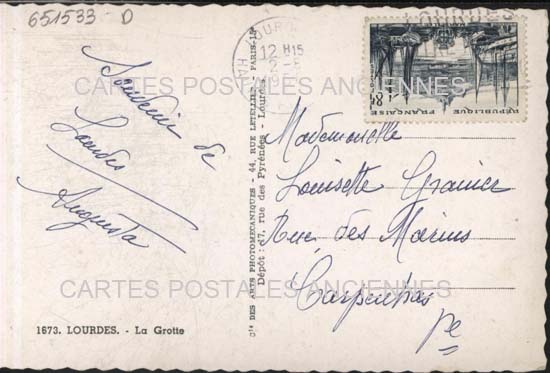 651533 - D
Souvenir de
Lourdes
Augusta
1673. LOURDES. - La Grotte
Cie DES ARTS PHOTOMECANIQUES - 44, RUE LETELLIER - PARIS-15e
Dépôt : 17, rue des Pyrénées - Lourdes
12 H15
RÉPUBLIQUE FRANÇAISE
Mademoiselle
Louisette Granier
Rue des Marins
Carpentras
CARTES POSTALES ANCIENNES
CARTES POSTALES ANCIENNES